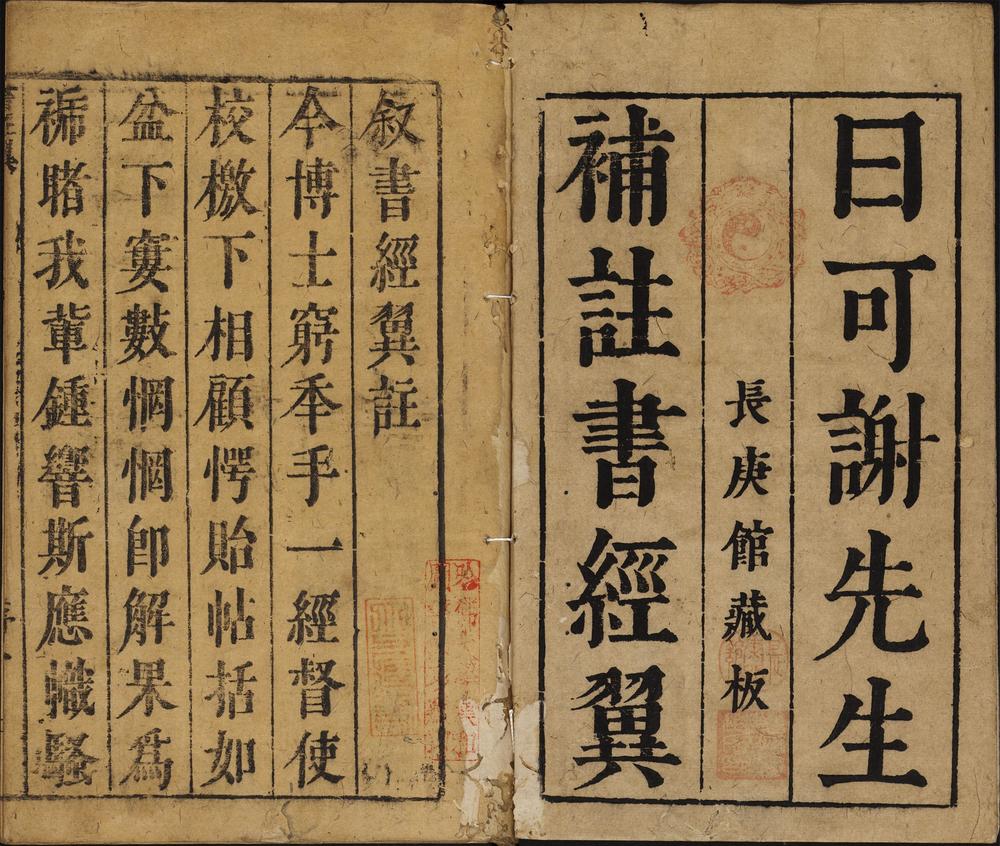 日可謝先生
長庚館藏板
補註書經翼
叙書經翼註
今博士窮秊手一經督使
校檄下相顧愕眙帖括如
盆下寠數惘惘卽解果爲
褅睹我輩鍾響斯應幟騷